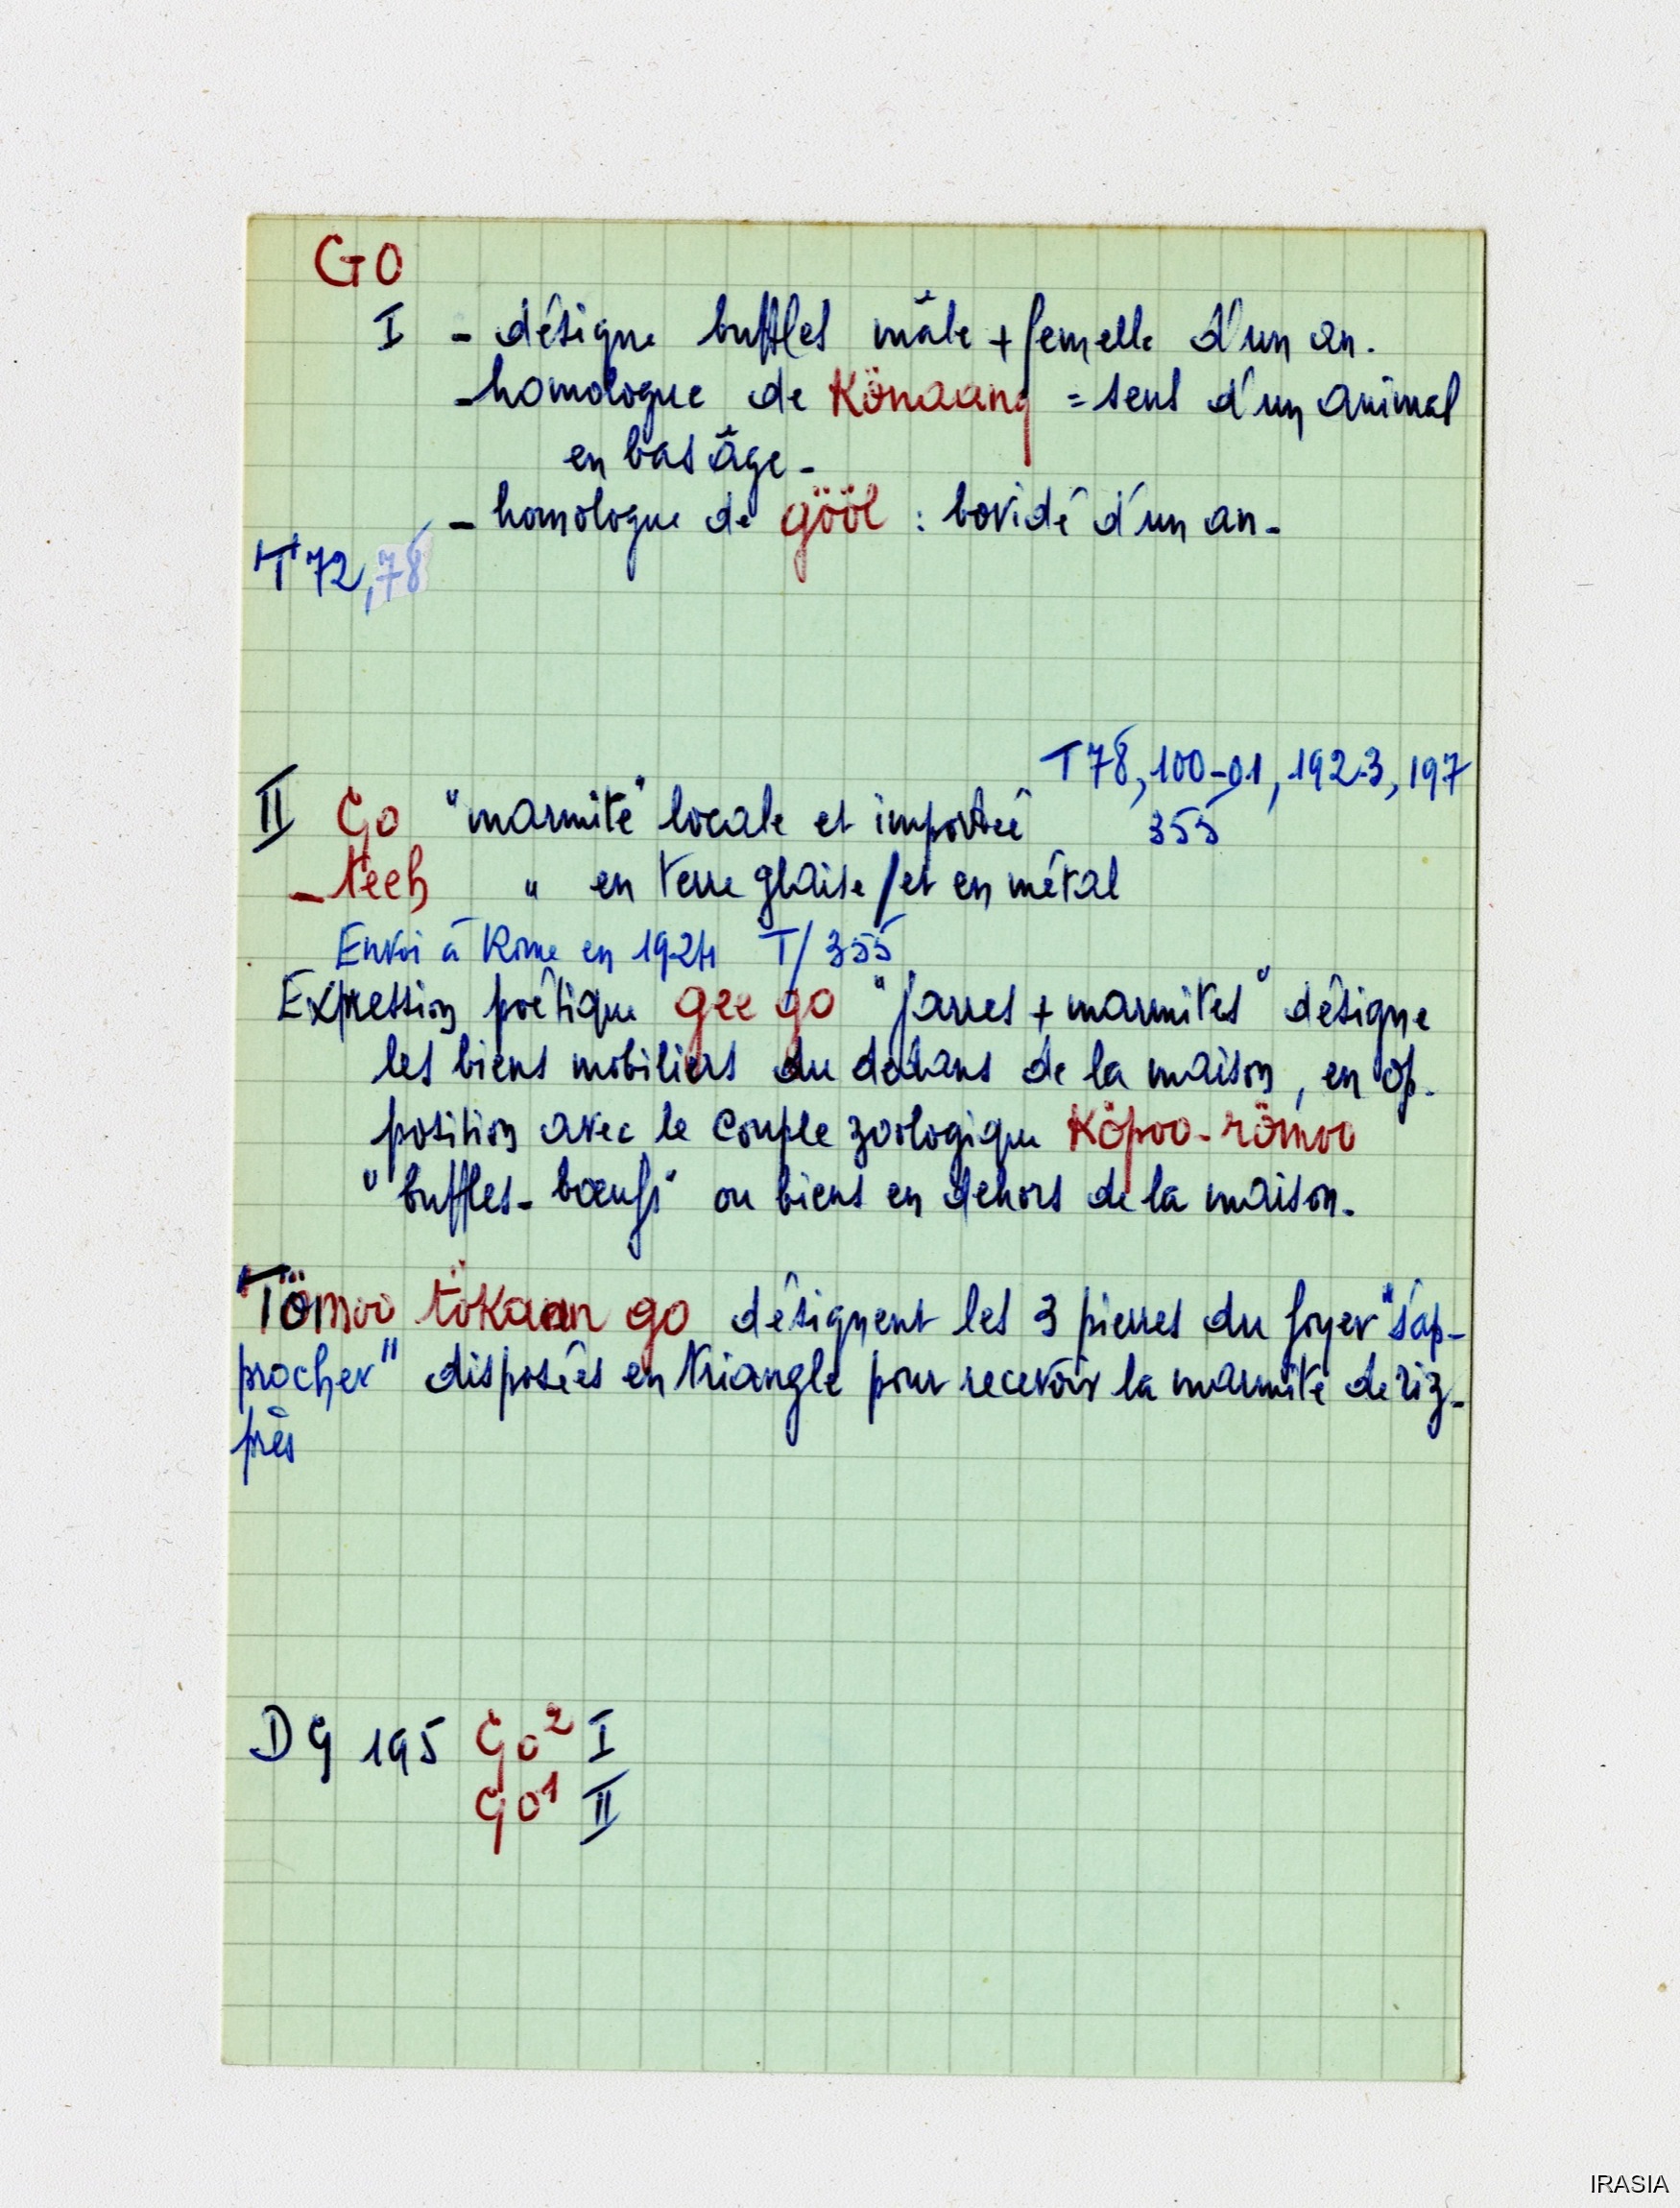 GO
I - désigne buffles mâle + femelle d'un an.
- homologue de Könaang = sens d'un animal
en bas âge -
- homologue de gööl : bovidé d'un an -
T 72, 78
T 78, 100-01, 192-3, 197
355
II Go "marmite" locale et importée
- teeh " en terre glaise / et en métal
Envoi à Rome en 1924 T/355
Expression poétique gee go "jarres + marmites" désigne
les biens mobiliers du dedans de la maison, en op-
position avec le couple zoologique Köpoo-römoo
"buffles-bœufs" ou biens en dehors de la maison.
Tömoo tökaan go désignent les 3 pierres du foyer "s'ap-
procher" disposées en triangle pour recevoir la marmite de riz -
près
DG 195 Go² I
Go¹ II
IRASIA